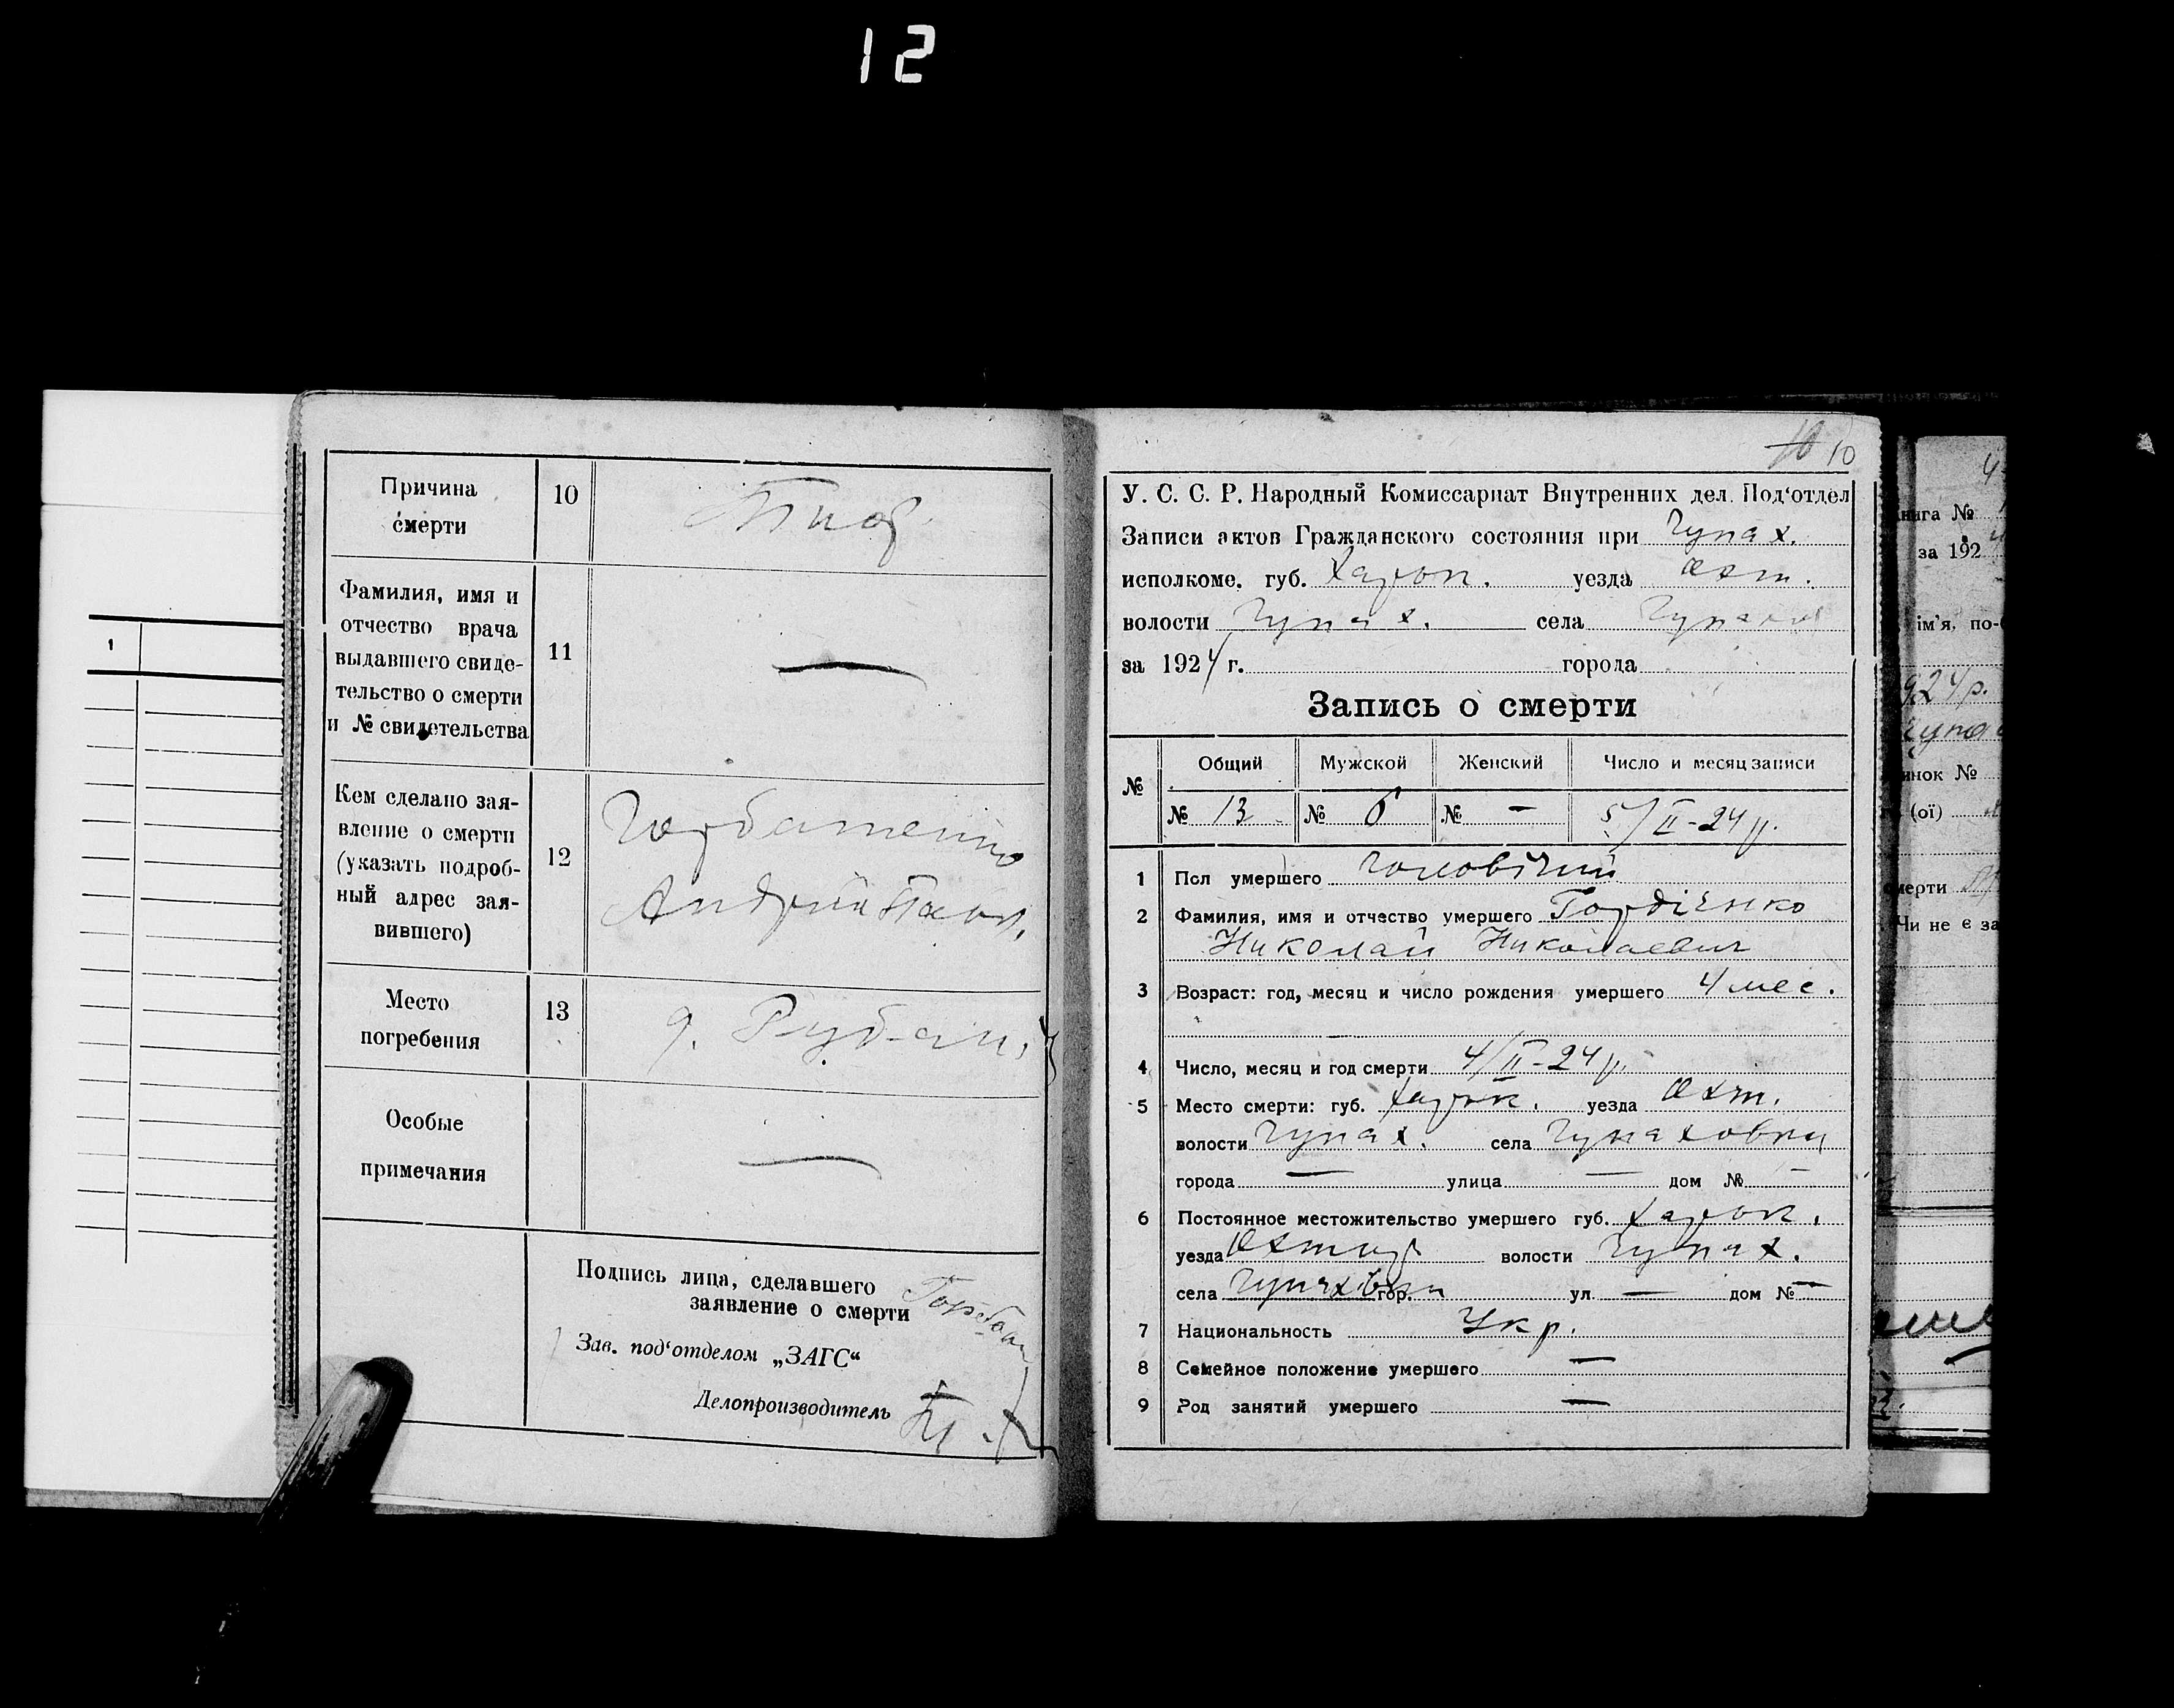 12
1
Причина
смерти
10
Фамилия, имя и
отчество врача
выдавшего свиде-
тельство о смерти
и № свидетельства
11
—
Кем сделано зая-
вление о смерти
(указать подроб-
ный адрес зая-
вившего)
12
Горбатенко
Андрій Павл.
Место
погребения
13
Особые
примечания
—
Подпись лица, сделавшего
заявление о смерти
Зав. под‘отделом „ЗАГС“
Делопроизводитель
10 10
У. С. С. Р. Народный Комиссариат Внутренних дел. Под‘отдел
Записи актов Гражданского состояния при Чупах.
исполкоме. губ. Харьк. уезда Охт.
волости Чупах. села
за 1924 г. города
Запись о смерти
№ Общий Мужской Женский Число и месяц записи
№ 13 № 6 № — 5/II-24 р.
1 Пол умершего чоловічий
2 Фамилия, имя и отчество умершего Гордіенко
Николай Николаевич
3 Возраст: год, месяц и число рождения умершего 4 мес.
4 Число, месяц и год смерти 4/II-24 р.
5 Место смерти: губ. Харьк. уезда Охт.
волости Чупах. села Чупаховки
города — улица — дом № —
6 Постоянное местожительство умершего губ. Харьк.
уезда Охтир волости Чупах.
села Чупахівки гор. ул. — дом № —
7 Национальность Укр.
8 Семейное положение умершего —
9 Род занятий умершего —
нига №
за 192
ім’я, по-
924 р.
инок №
(ої)
мерти
Чи не є за